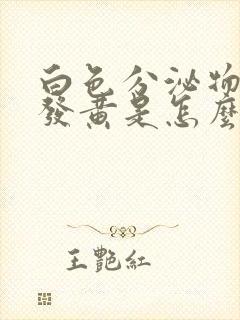 白色分泌物
發黃是怎麼
王艷紅